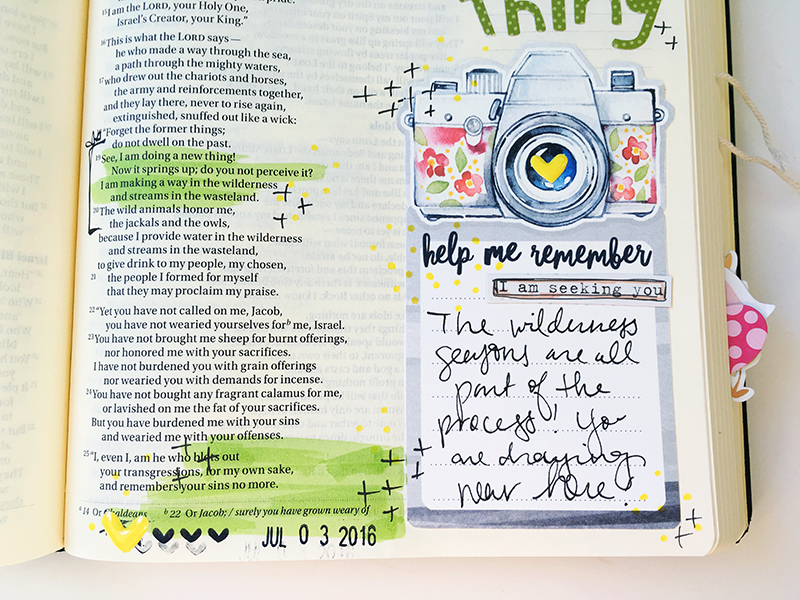 15 I am the LORD, your Holy One,
Israel's Creator, your King."
16 This is what the LORD says—
he who made a way through the sea,
a path through the mighty waters,
17 who drew out the chariots and horses,
the army and reinforcements together,
and they lay there, never to rise again,
extinguished, snuffed out like a wick:
"Forget the former things;
do not dwell on the past.
19 See, I am doing a new thing!
Now it springs up; do you not perceive it?
I am making a way in the wilderness
and streams in the wasteland.
20 The wild animals honor me,
the jackals and the owls,
because I provide water in the wilderness
and streams in the wasteland,
to give drink to my people, my chosen,
21 the people I formed for myself
that they may proclaim my praise.
22 "Yet you have not called on me, Jacob,
you have not wearied yourselves for b me, Israel.
23 You have not brought me sheep for burnt offerings,
nor honored me with your sacrifices.
I have not burdened you with grain offerings
nor wearied you with demands for incense.
24 You have not bought any fragrant calamus for me,
or lavished on me the fat of your sacrifices.
But you have burdened me with your sins
and wearied me with your offenses.
25 "I, even I, am he who blots out
your transgressions, for my own sake,
and remembers your sins no more.
a 14 Or Chaldeans b 22 Or Jacob; / surely you have grown weary of
JUL 03 2016
thing
help me remember
I am seeking you
The wilderness
seasons are all
part of the
process! You
are drawing
near here!